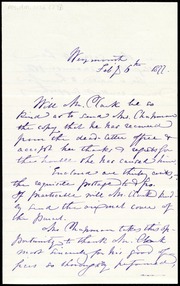 Weymouth
Feb 6th 1877.
Will Mr. Clark be so
kind as to send Mrs. Chapman
the copy that he has received
from the dead-letter office &
accept her thanks & regrets for
the trouble she has caused him.
Enclosed are thirty cents,
the requisite postage to & fro.
If practicable will Mr. Clark kind-
ly send the original cover of
the Parcel.
Mrs. Chapman takes this op-
portunity to thank Mr. Clark
most sincerely for his good of-
fices so thoroughly performed,